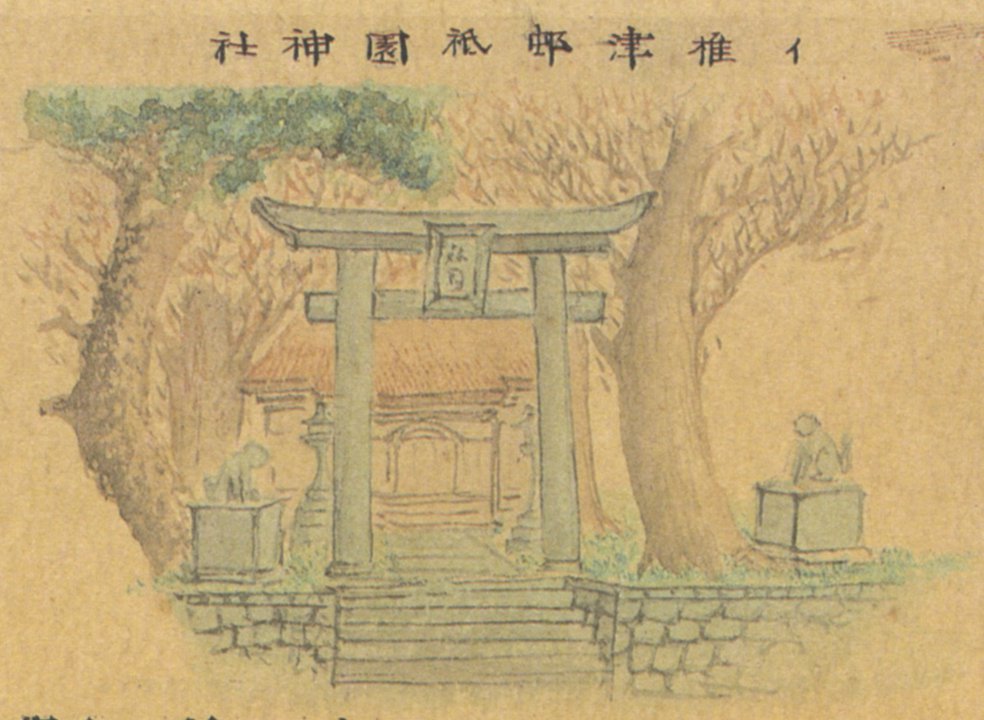 イ 椎津邨祇園神社